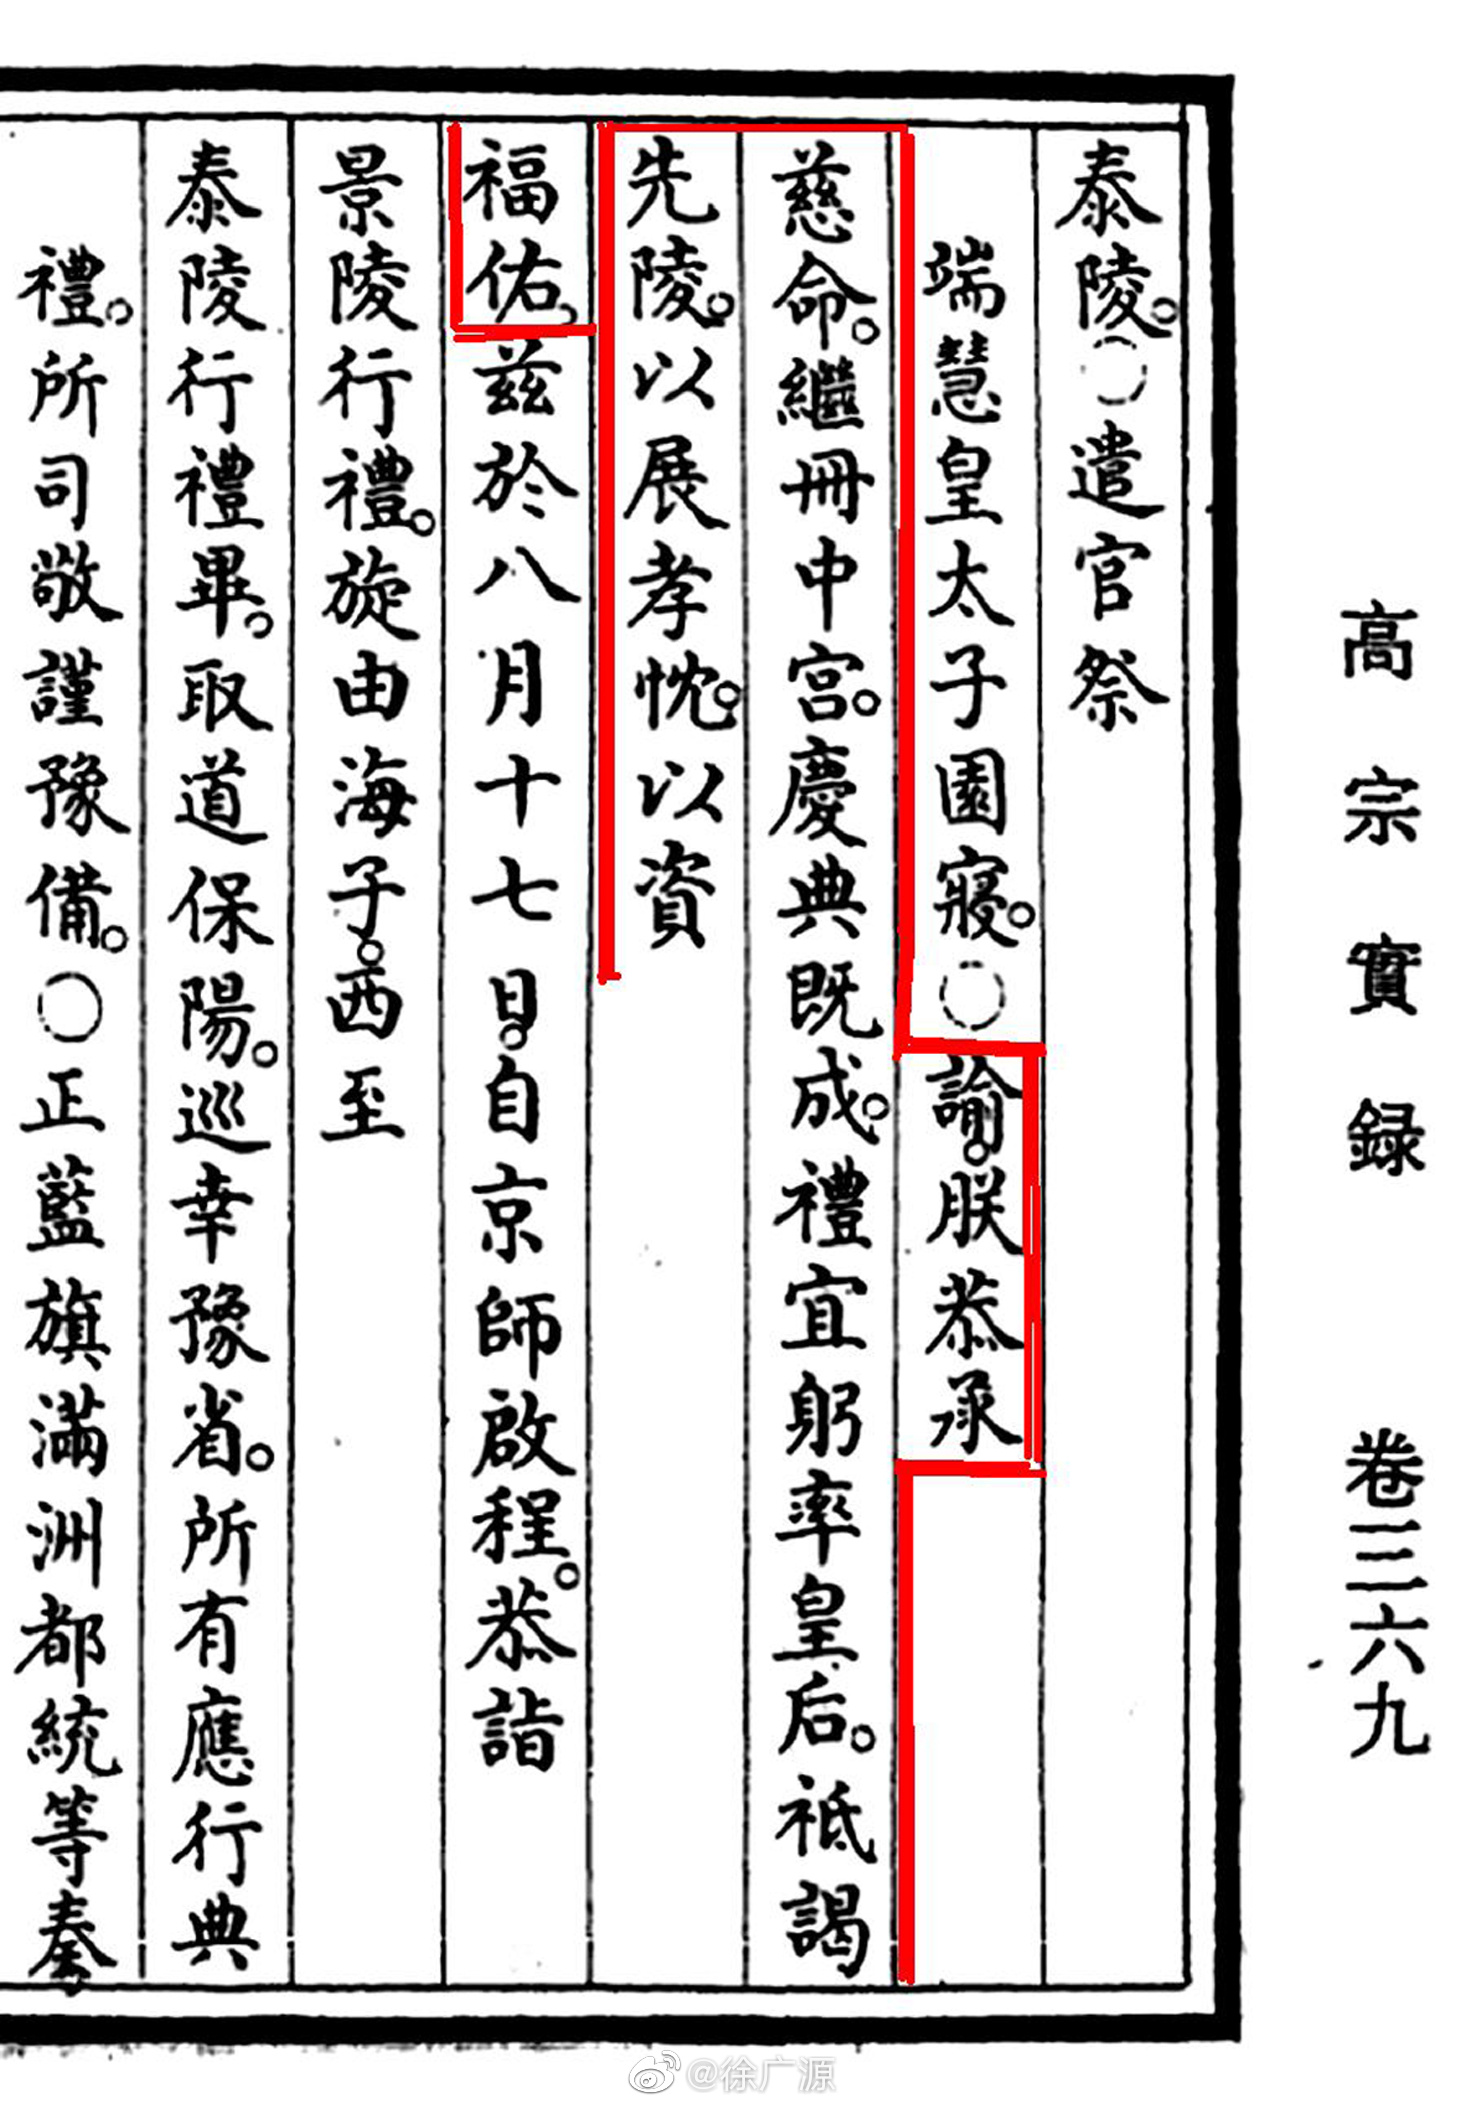 高宗實録 卷三六九
泰陵。○遣官祭
端慧皇太子園寢。○諭。朕恭承
慈命。繼冊中宮。慶典既成。禮宜躬率皇后。祇謁
先陵。以展孝忱。以資
福佑。茲於八月十七日。自京師啟程。恭詣
景陵行禮。旋由海子。西至
泰陵行禮畢。取道保陽。巡幸豫省。所有應行典
禮。所司敬謹豫備。○正藍旗滿洲都統等奏
@徐广源